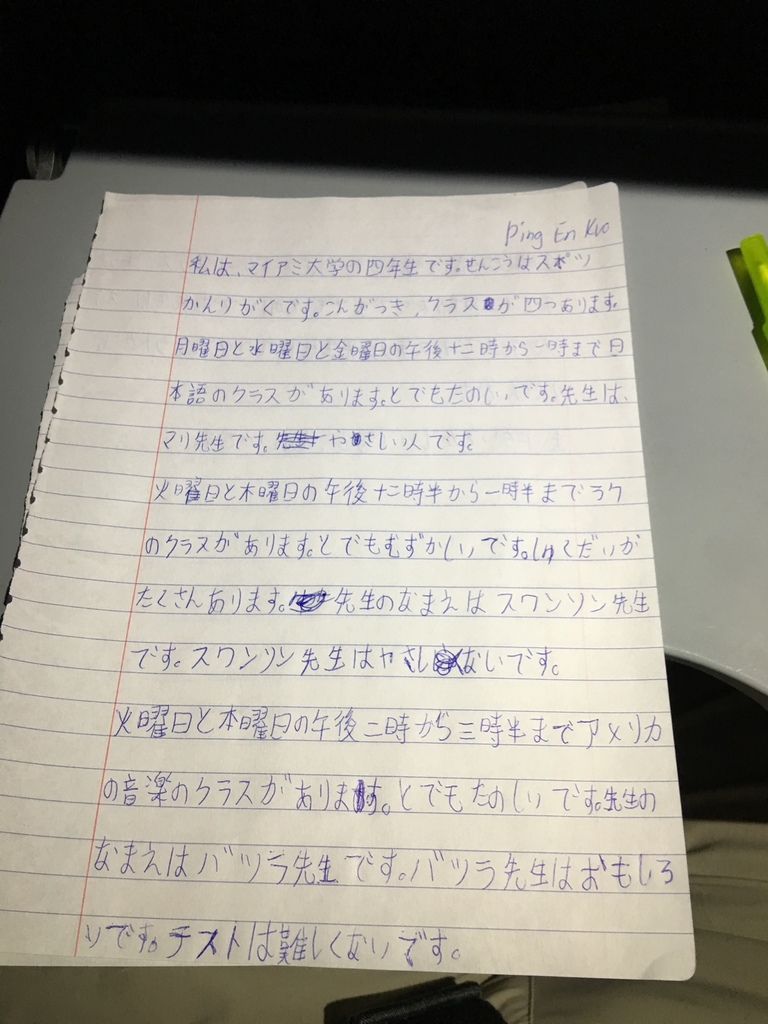 Ping En Kuo
私は、マイアミ大学の四年生です。せんこうはスポーツ
かんりがくです。こんがっき、クラスが四つあります。
月曜日と水曜日と金曜日の午後十二時から一時まで日
本語のクラスがあります。とでもたのしいです。先生は、
マリ先生です。やさしい人です。
火曜日と木曜日の午後十二時半から一時半までラク
のクラスがあります。とでもむずかしいです。しゅくだいが
たくさんあります。先生のなまえはスワンソン先生
です。スワンソン先生はやさしないです。
火曜日と木曜日の午後二時から三時半までアメリカ
の音楽のクラスがあります。とでもたのしいです。先生の
なまえはバツラ先生です。バツラ先生はおもしろ
いです。テストは難しくないです。